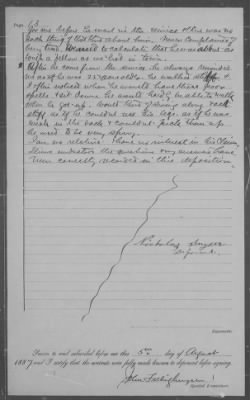 Page 63
for me before he went in the service & there was no
such thing of that kind about him. Never complained of
being sick. We used to calculate that he was about as
tough a fellow as we had in town.
After he came from the army he always reminded
us as if he was years older. he walked stiff &
I often noticed when he would have them poor
spells & sit down he would hardly be able to walk
when he got up. Would kind of drag along
stiff as if he couldnt use his legs. as if he was
weak in the back & couldnt pick them up.
he used to be very spry.
I am no relation & have no interest in his claim.
I have understood the questions & my answers have
been correctly recorded in this deposition.
Nicholas Snyder
Deponent.
Sworn to and subscribed before me this 5th day of August
1887 and I certify that the contents were fully made known to deponent before signing.
Special Examiner.